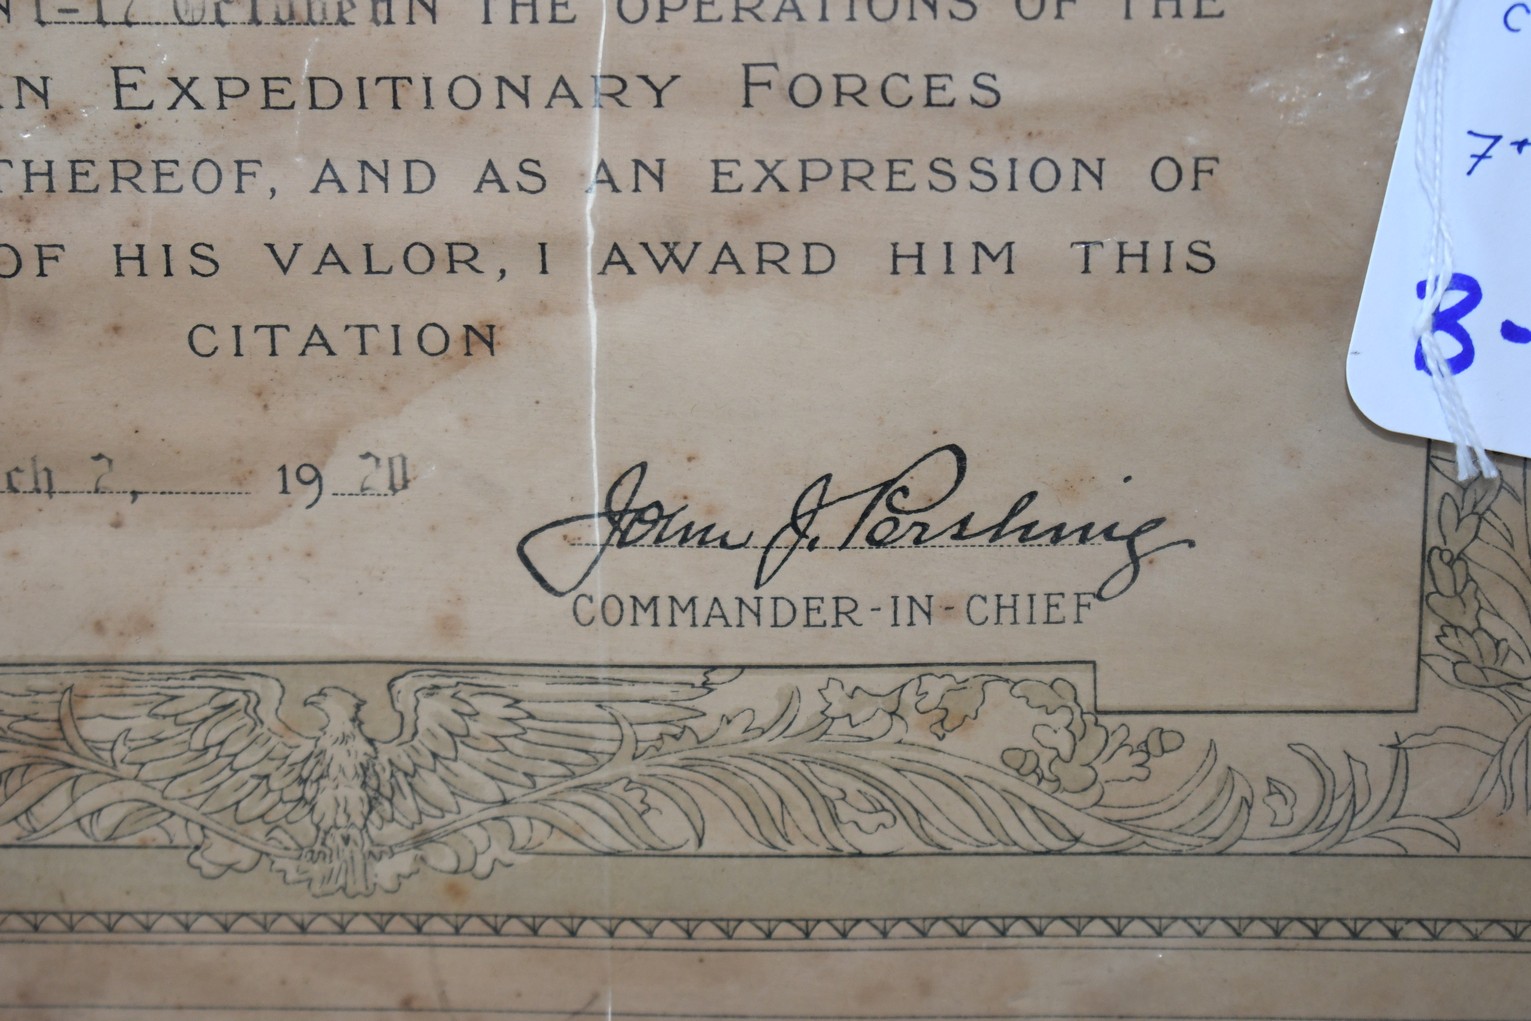 1-17 October IN THE OPERATIONS OF THE
EXPEDITIONARY FORCES
THEREOF, AND AS AN EXPRESSION OF
OF HIS VALOR, I AWARD HIM THIS
CITATION
ch 2, 1920
John J. Pershing
COMMANDER-IN-CHIEF
7+
3-